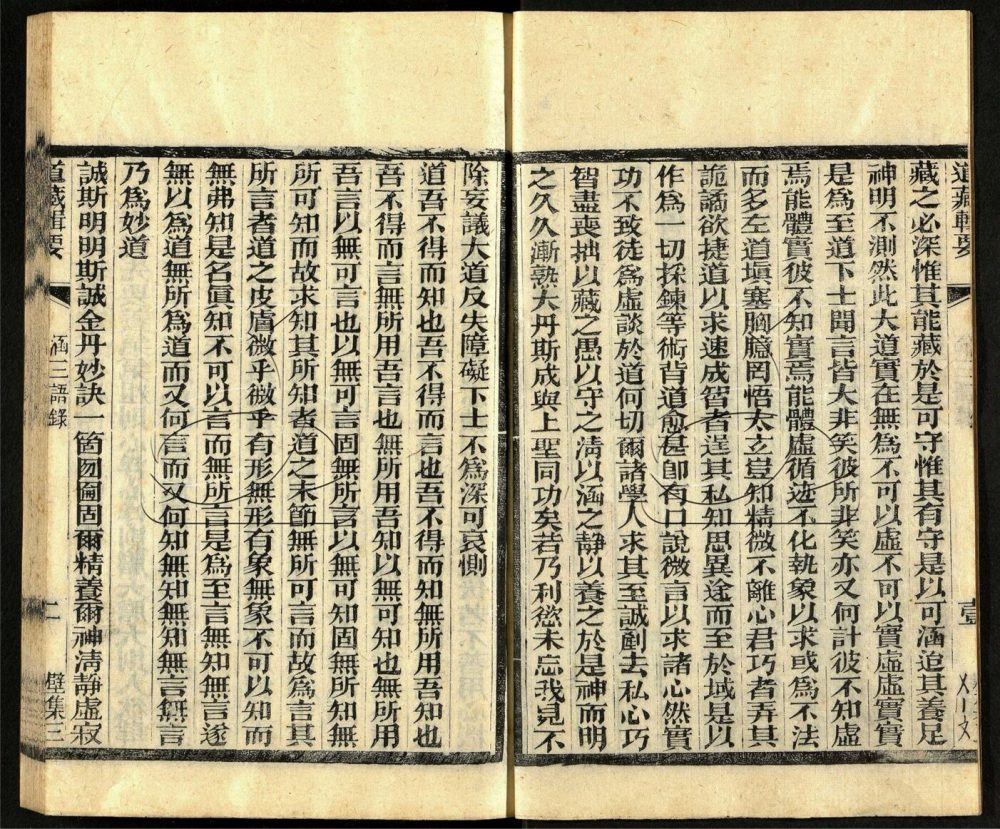 道藏輯要
壹
藏之必深惟其能藏於是可守惟其有守是以可涵迨其養足
神明不測然此大道實在無為不可以虛不可以實虛虛實實
是為至道下士聞言皆大非笑彼所非笑亦又何計彼不知虛
焉能體實彼不知實焉能體虛循迹不化執象以求或為不法
而多左道塡塞胸臆罔悟太玄豈知精微不離心君巧者弄其
詭譎欲捷道以求速成智者逞其私知思異途而至於域是以
作為一切採鍊等術背道愈甚卽有口說微言以求諸心然實
功不致徒為虛談於道何切爾諸學人求其至誠剷去私心巧
智盡喪拙以藏之愚以守之淸以涵之靜以養之於是神而明
之久久漸熟大丹斯成與上聖同功矣若乃利慾未忘我見不
除妄議大道反失障礙下士不為深可哀惻
道吾不得而知也吾不得而言也吾不得而知無所用吾知也
吾不得而言無所用吾言也無所用吾知以無可知也無所用
吾言以無可言也以無可言固無所言以無可知固無所知無
所可知而故求知其所知者道之末節無所可言而故為言其
所言者道之皮膚微乎微乎有形無形有象無象不可以知而
無弗知是名眞知不可以言而無所言是為至言無知無言遂
無以為道無所為道而又何言而又何知無知無知無言無言
乃為妙道
誠斯明明斯誠金丹妙訣一箇囫圇固爾精養爾神淸靜虛寂
道藏輯要
涵三語錄
二
壁集三